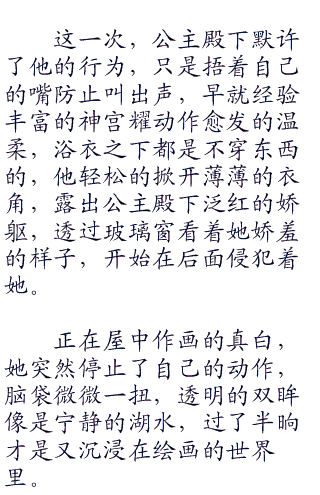 这一次，公主殿下默许
了他的行为，只是捂着自己
的嘴防止叫出声，早就经验
丰富的神宫耀动作愈发的温
柔，浴衣之下都是不穿东西
的，他轻松的掀开薄薄的衣
角，露出公主殿下泛红的娇
躯，透过玻璃窗看着她娇羞
的样子，开始在后面侵犯着
她。
正在屋中作画的真白，
她突然停止了自己的动作，
脑袋微微一扭，透明的双眸
像是宁静的湖水，过了半晌
才是又沉浸在绘画的世界
里。